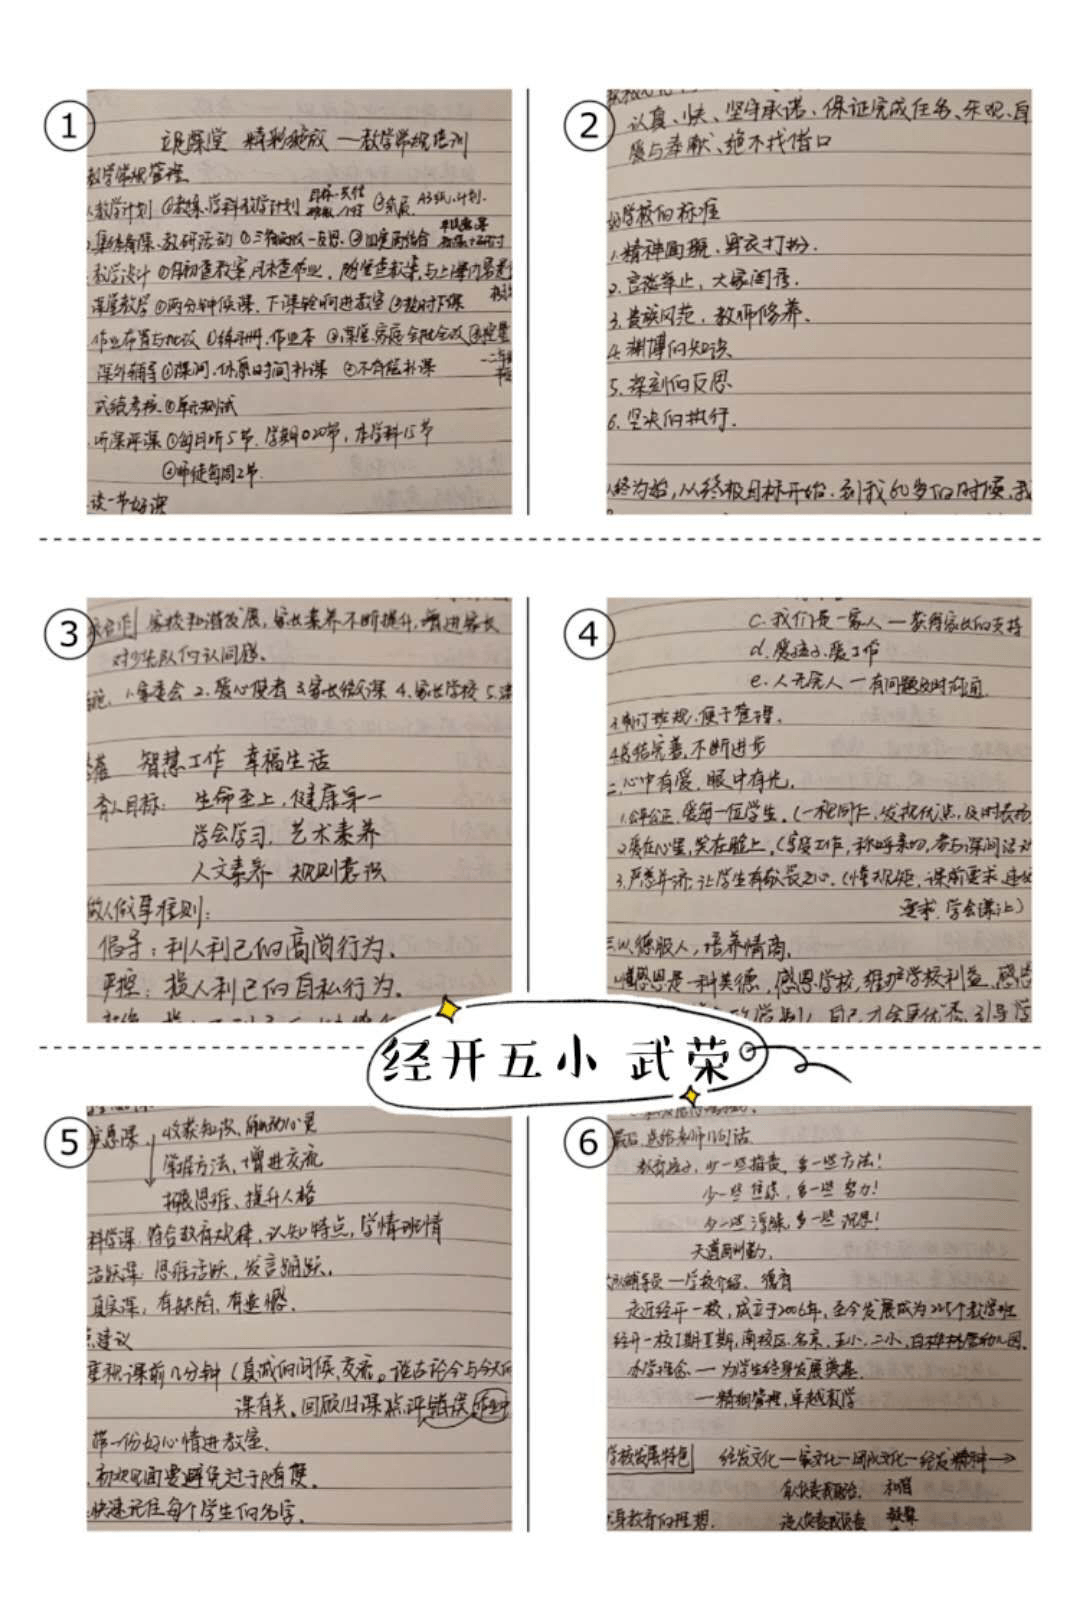 ①
立足课堂 精彩绽放 — 教学常规培训
教学常规管理
教学计划 ①教案、学科教学计划
②纸质 A3纸、计划.
集体备课、教研活动 ①三备两改一反思. ②四定两结合
教学设计 ①月初查教案,月末查作业,
课堂教学 ①两分钟候课、下课铃响进教室 ③按时下课
作业布置与批改 ①练习册、作业本 ②课堂、家庭全批全改
课外辅导 ①课间、休息时间补课 ②不有偿补课
成绩考核 ①单元测试
听课评课 ①每月听5节、学期20节,本学科15节
②师徒每周2节.
读一节好课
②
认真、快、坚守承诺、保证完成任务、乐观、自
爱与奉献、绝不找借口
好学校的标准
1.精神面貌、穿衣打扮.
2.言谈举止,大家闺秀.
3.贵族风范,教师修养.
4.渊博的知识
5.深刻的反思
6.坚决的执行.
以终为始,从终极目标开始.到我60岁的时候,我
③
家校和谐发展,家长素养不断提升,增进家长
对少先队的认同感.
1.家委会 2.爱心使者 3.家长微课 4.家长学校 5.
智慧工作 幸福生活
育人目标: 生命至上,健康第一
学会学习, 艺术素养
人文素养 规则意识
做人做事准则:
倡导:利人利己的高尚行为.
严控:损人利己的自私行为.
④
c.我们是一家人 — 获得家长的支持
d.爱孩子、爱工作
e.人无完人 — 有问题及时沟通
3.制订班规,便于管理.
4.总结完善,不断进步
二.心中有爱,眼中有光.
1.公平公正,爱每一位学生.(一视同仁,发现优点,及时表扬
2.爱在心里,笑在脸上.(家度工作,称呼亲切,参与课间活动
3.严慈并济,让学生有敬畏之心.(懂规矩,课前要求,
要求,学会课上)
三.以德服人,培养情商.
懂感恩是一种美德,感恩学校,维护学校利益,感恩
自己才会更优秀,引导学
经开五小 武荣
⑤
收获知识、
掌握方法,增进交流
拓展思维、提升人格
科学课 符合教育规律,认知特点,学情班情
活跃课 思维活跃,发言踊跃.
真实课,有缺陷,有遗憾.
点建议
重视课前几分钟(真诚的问候,交流。谈古论今与今天的
课有关.回顾旧课,点评错误作业
带一份好心情进教室.
初次见面要避免过于随便.
快速记住每个学生的名字.
⑥
最后,送给老师几句话
教育孩子,少一些指责,多一些方法!
少一些焦虑,多一些努力!
少一些浮躁,多一些沉思!
天道酬勤.
大队辅导员 — 学校介绍、德育
走近经开一校,成立于2006年,至今发展成为225个教学班
经开一校I期II期,南校区,名京,五小,二小,白桦林居幼儿园.
办学理念 — 为学生终身发展奠基.
— 精细管理,卓越教学
学校发展特色 经发文化—家文化—团队文化—经发精神→
教育的理想.